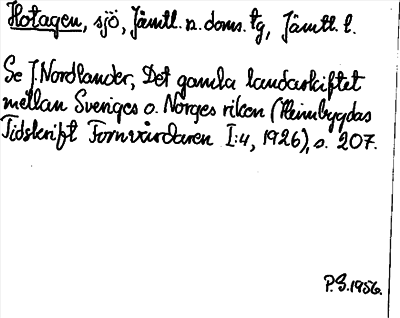 Hotagen, sjö, Jämtl. n. doms. tg, Jämtl. l.
Se J. Nordlander, Det gamla landaskiftet
mellan Sveriges o. Norges riken (Heimbygdas
Tidskrift Fornvårdaren I:4, 1926), s. 207.
P.S. 1956.